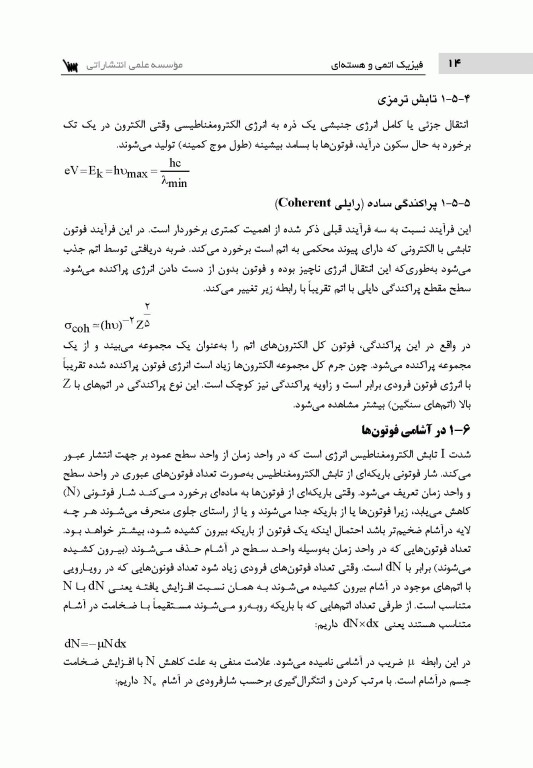 ۱۴ فیزیک اتمی و هسته‌ای مؤسسه علمی انتشاراتی
۱-۵-۴ تابش ترمزی
انتقال جزئی یا کامل انرژی جنبشی یک ذره به انرژی الکترومغناطیسی وقتی الکترون در یک تک
برخورد به حال سکون درآید، فوتون‌ها با بسامد بیشینه (طول موج کمینه) تولید می‌شوند.
eV=Ek=hυmax=hc/λmin
۱-۵-۵ پراکندگی ساده (رایلی Coherent)
این فرآیند نسبت به سه فرآیند قبلی ذکر شده از اهمیت کمتری برخوردار است. در این فرآیند فوتون
تابشی با الکترونی که دارای پیوند محکمی به اتم است برخورد می‌کند. ضربه دریافتی توسط اتم جذب
می‌شود به‌طوری‌که این انتقال انرژی ناچیز بوده و فوتون بدون از دست دادن انرژی پراکنده می‌شود.
سطح مقطع پراکندگی دایلی با اتم تقریباً با رابطه زیر تغییر می‌کند.
σcoh ≈(hυ)⁻² Z^۲/۵
در واقع در این پراکندگی، فوتون کل الکترون‌های اتم را به‌عنوان یک مجموعه می‌بیند و از یک
مجموعه پراکنده می‌شود. چون جرم کل مجموعه الکترون‌ها زیاد است انرژی فوتون پراکنده شده تقریباً
با انرژی فوتون فرودی برابر است و زاویه پراکندگی نیز کوچک است. این نوع پراکندگی در اتم‌های با Z
بالا (اتم‌های سنگین) بیشتر مشاهده می‌شود.
۱-۶ در آشامی فوتون‌ها
شدت I تابش الکترومغناطیس انرژی است که در واحد زمان از واحد سطح عمود بر جهت انتشار عبور
می‌کند. شار فوتونی باریکه‌ای از تابش الکترومغناطیس به‌صورت تعداد فوتون‌های عبوری در واحد سطح
و واحد زمان تعریف می‌شود. وقتی باریکه‌ای از فوتون‌ها به ماده‌ای برخورد می‌کند شار فوتونی (N)
کاهش می‌یابد، زیرا فوتون‌ها یا از باریکه جدا می‌شوند و یا از راستای جلوی منحرف می‌شوند هر چه
لایه درآشام ضخیم‌تر باشد احتمال اینکه یک فوتون از باریکه بیرون کشیده شود، بیشتر خواهد بود.
تعداد فوتون‌هایی که در واحد زمان به‌وسیله واحد سطح در آشام حذف می‌شوند (بیرون کشیده
می‌شوند) برابر با dN است. وقتی تعداد فوتون‌های فرودی زیاد شود تعداد فوتون‌هایی که در رویارویی
با اتم‌های موجود در آشام بیرون کشیده می‌شوند به همان نسبت افزایش یافته یعنی dN با N
متناسب است. از طرفی تعداد اتم‌هایی که با باریکه روبه‌رو می‌شوند مستقیماً با ضخامت در آشام
متناسب هستند یعنی dN×dx داریم:
dN=−μNdx
در این رابطه μ ضریب در آشامی نامیده می‌شود. علامت منفی به علت کاهش N با افزایش ضخامت
جسم درآشام است. با مرتب کردن و انتگرال‌گیری برحسب شارفرودی در آشام N₀ داریم: